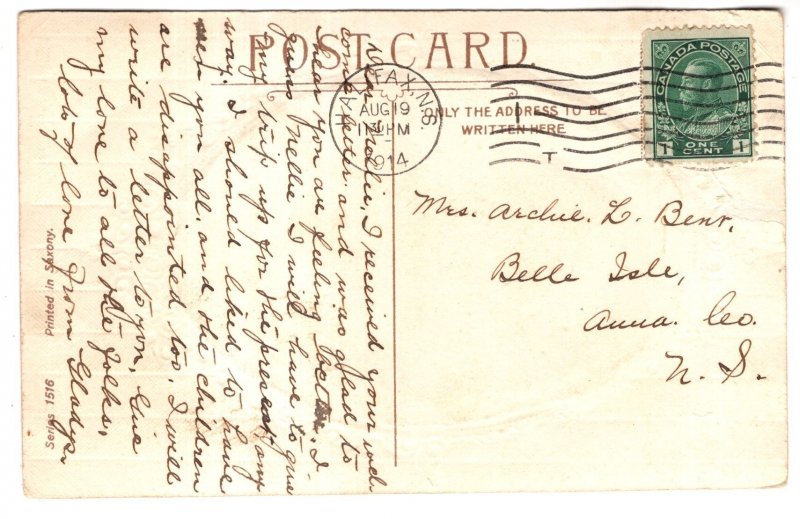 POST CARD.
HALIFAX, N.S.
AUG 19
PM
1914
CANADA POSTAGE
1 ONE CENT 1
ONLY THE ADDRESS TO BE
WRITTEN HERE
T
Mrs. Archie. L. Bent,
Belle Isle,
Anna. Co.
N. S.
Dear I received your welcome
come letter and was glad to
hear you are feeling better. I
guess Nellie I will have to give
my trip up for the present, any
way. I should liked to have
seen you all, and the children
are disappointed too, I will
write a letter to you, Give
my love to all the folks,
lots of love from Gladys.
Series 1516 Printed in Saxony.